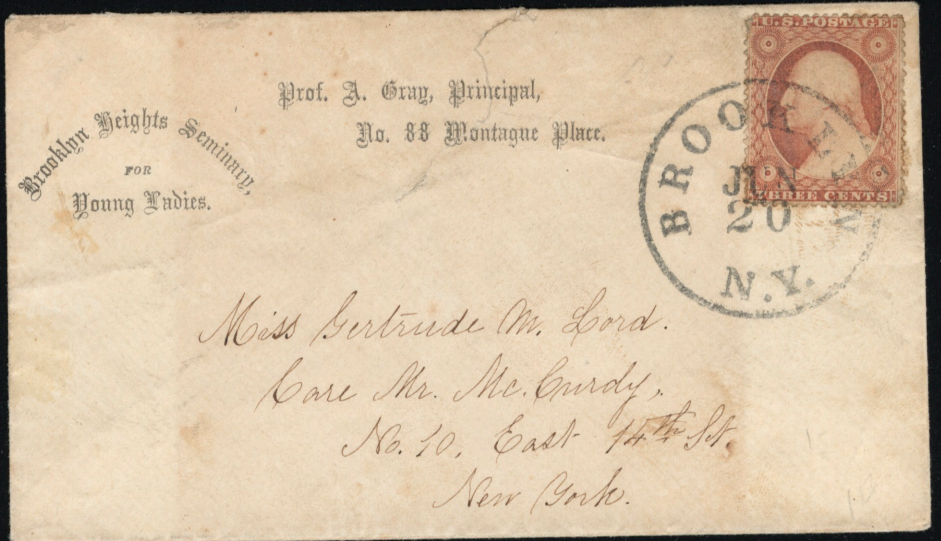 Brooklyn Heights Seminary,
FOR
Young Ladies.
Prof. A. Gray, Principal,
No. 88 Montague Place.
U.S. POSTAGE
THREE CENTS
BROOKLYN
JUN
20
N.Y.
Miss Gertrude M. Lord.
Care Mr. Mc. Curdy,
No. 10, East 14th St.
New York.